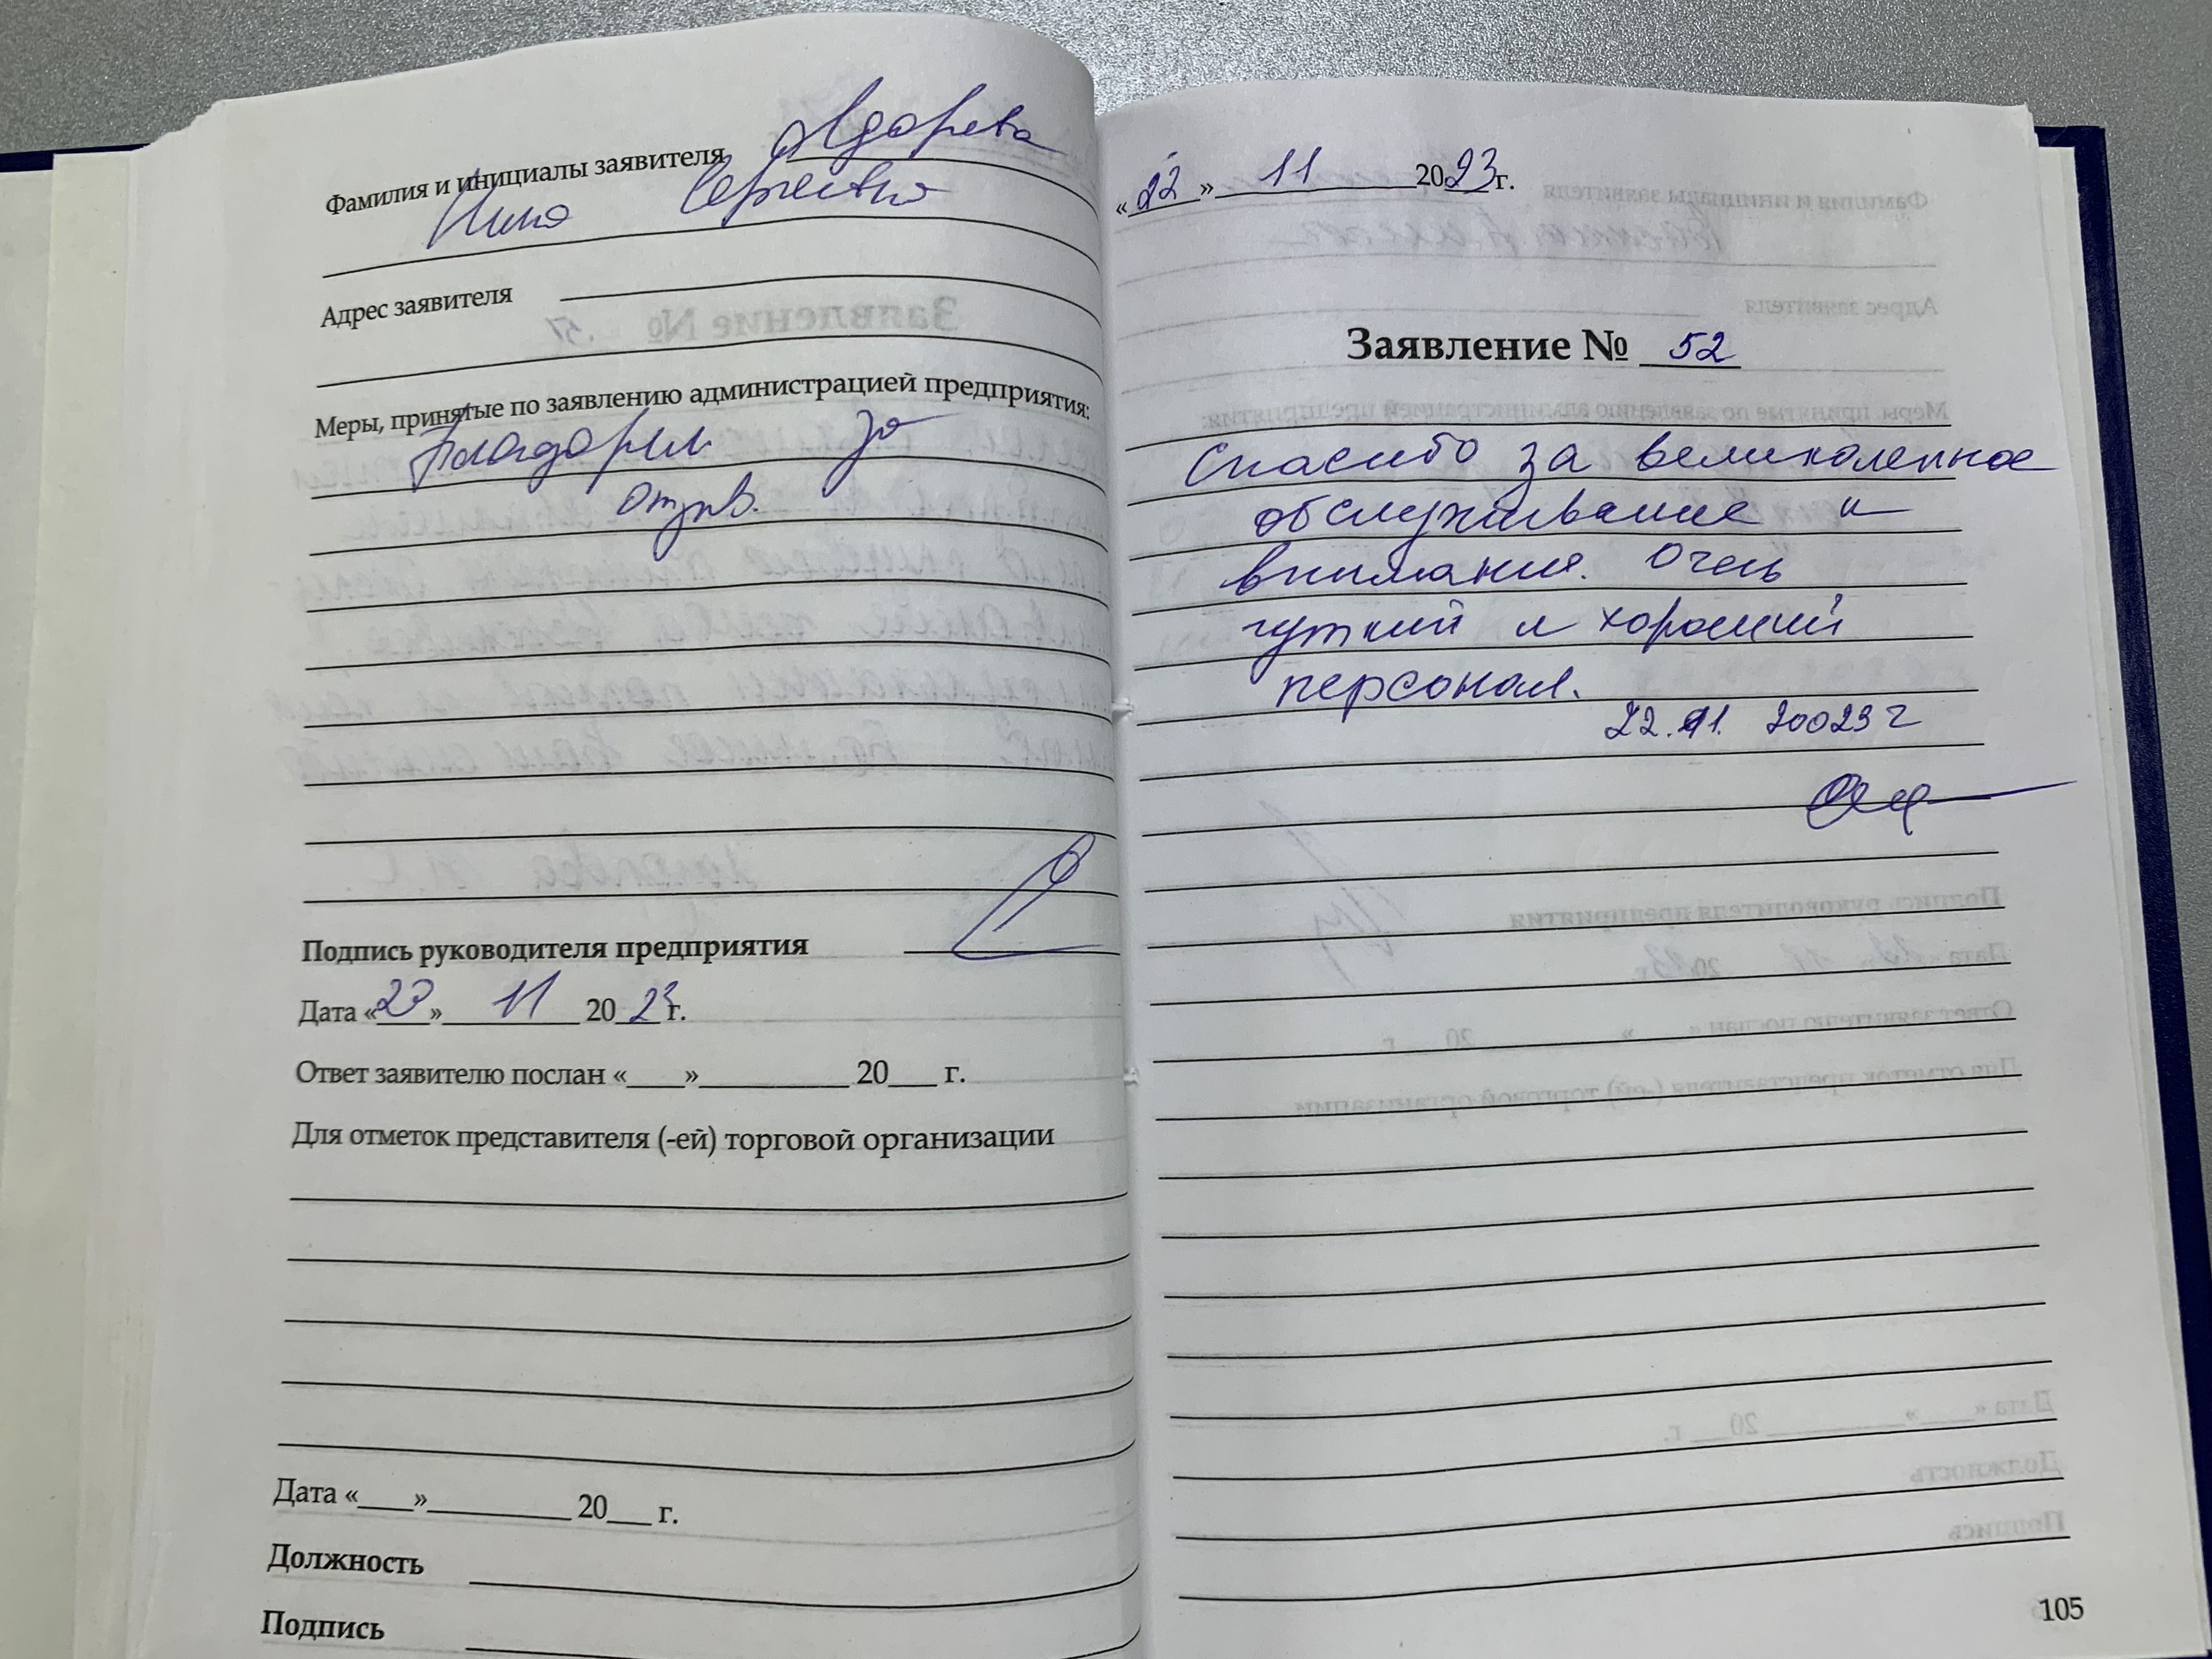 Фамилия и инициалы заявителя
Нина Сергеевна
Адрес заявителя
Меры, принятые по заявлению администрацией предприятия:
Благодарим за
отзыв.
Подпись руководителя предприятия
Дата «23» 11 2023г.
Ответ заявителю послан «___»__________ 20___ г.
Для отметок представителя (-ей) торговой организации
Дата «____»__________ 20___ г.
Должность
Подпись
«22» 11 2023г.
Заявление № 52
Спасибо за великолепное
обслуживание и
внимания. Очень
чуткий и хороший
персонал.
22.11. 20023 г
105